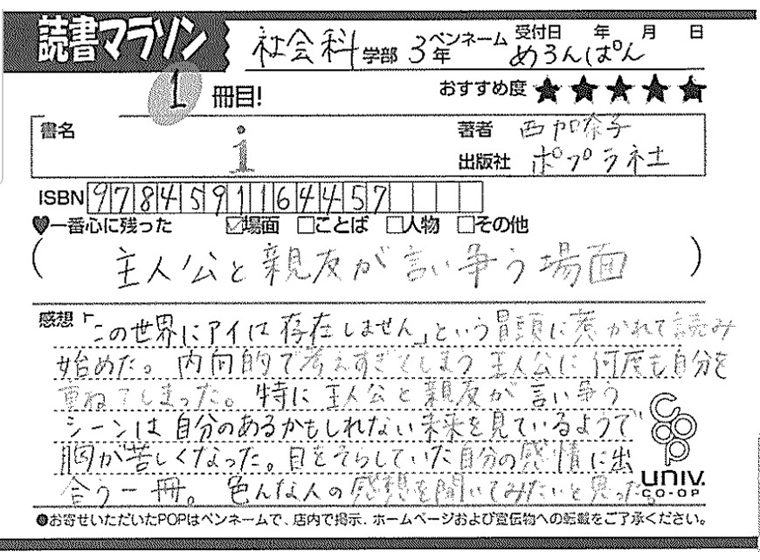 読書マラソン
社会科 学部 3年 ペンネーム めろんぱん 受付日 年 月 日
1 冊目! おすすめ度 ★★★★★
書名 i
著者 西加奈子
出版社 ポプラ社
ISBN 9784591164457
♥一番心に残った ☑場面 □ことば □人物 □その他
(主人公と親友が言い争う場面)
感想 「この世界にアイは存在しません」という冒頭に惹かれて読み
始めた。内向的で考えすぎてしまう主人公に何度も自分を
重ねてしまった。特に主人公と親友が言い争う
シーンは自分のあるかもしれない未来を見ているようで
胸が苦しくなった。目をそらしていた自分の感情に出
合う一冊。色んな人の感想を聞いてみたいと思った。
coop
UNIV.
CO-OP
●お寄せいただいたPOPはペンネームで、店内で掲示、ホームページおよび宣伝物への転載をご了承ください。